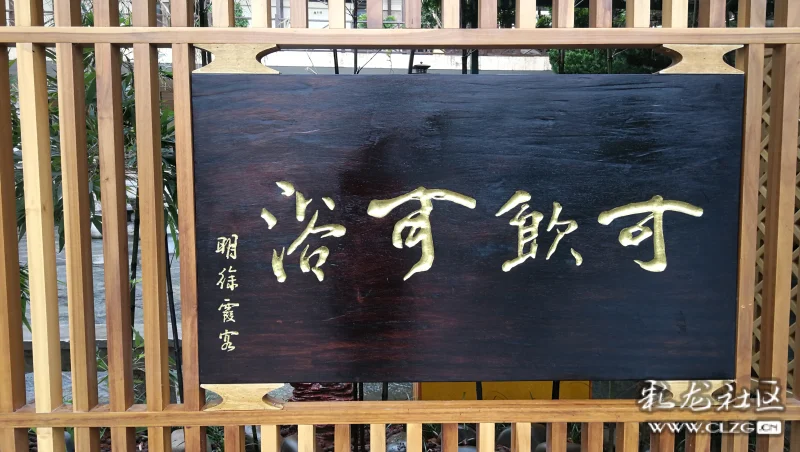 可飲可浴
明徐霞客
松龙社区
WWW.CLZG.CN